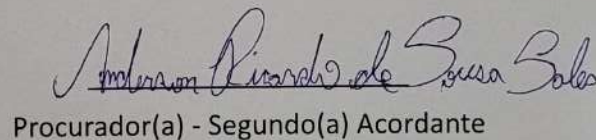 Anderson Ricardo de Sousa Sales
Procurador(a) - Segundo(a) Acordante